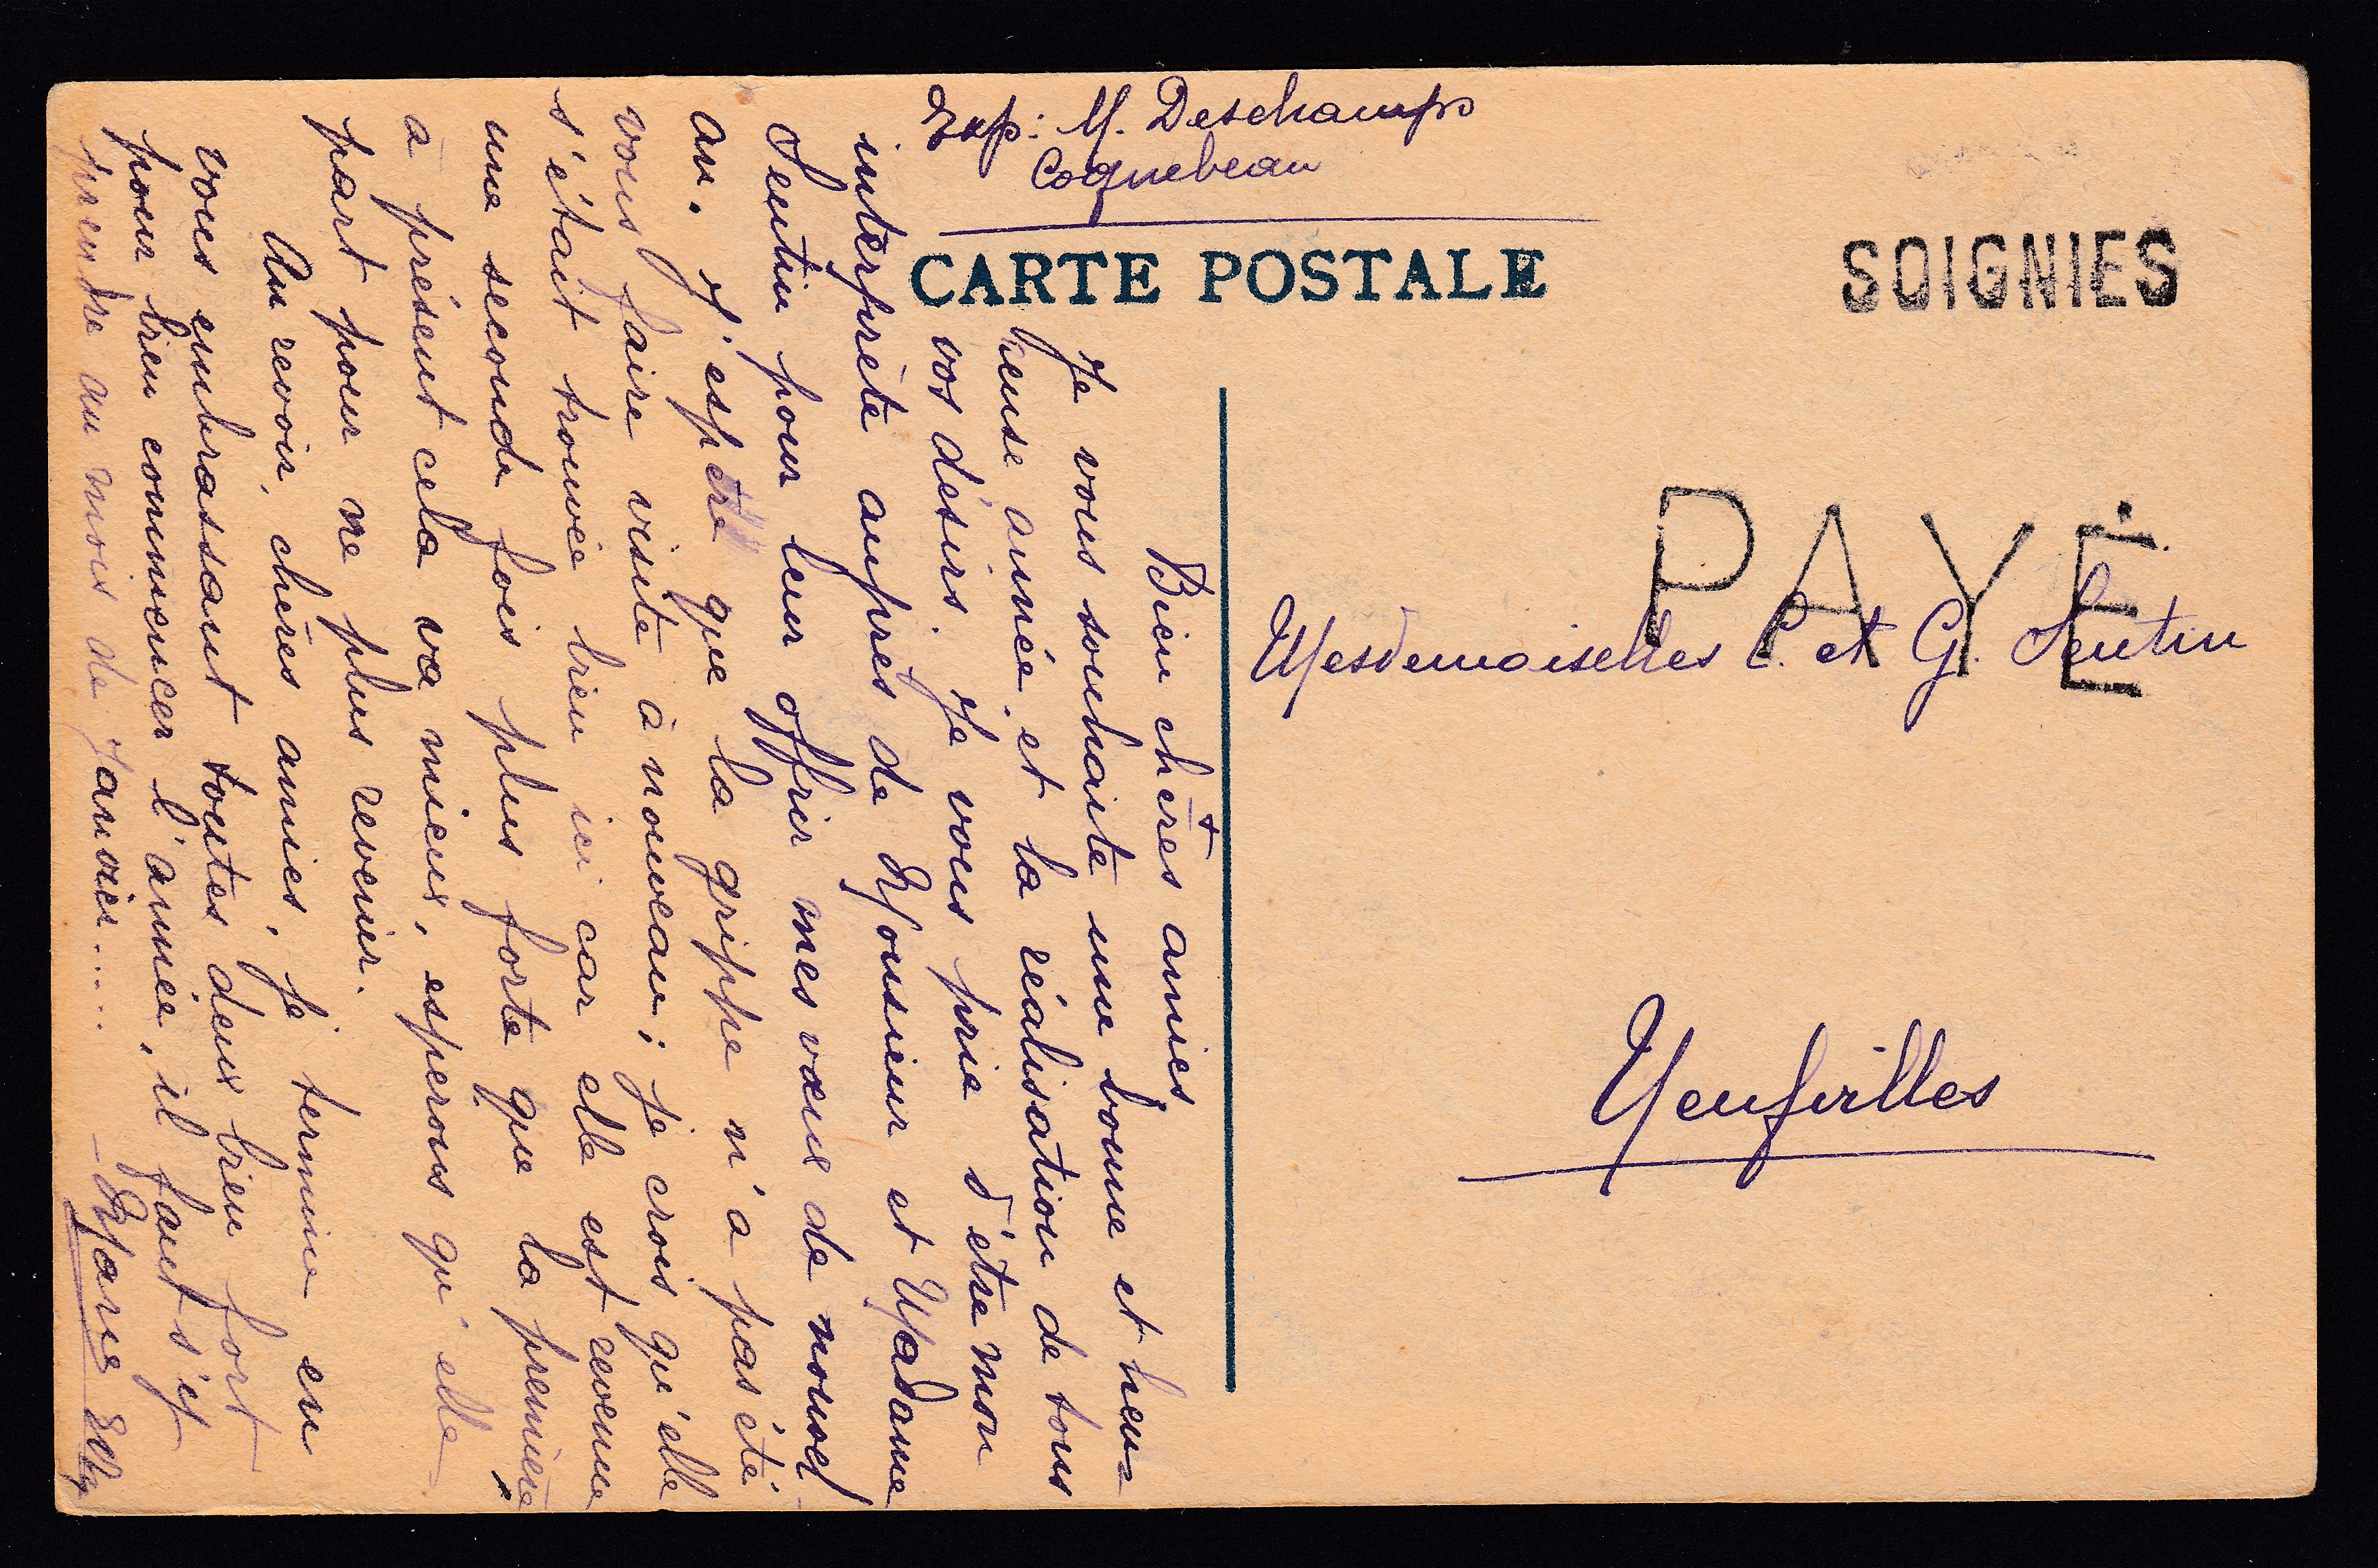 Exp: M. Deschamps
Coquebeau
CARTE POSTALE
SOIGNIES
PAYÉ
Mesdemoiselles C. et G. Sentin
Neufvilles
Bien chères amies
Je vous souhaite une bonne et heu=
reuse année, et la réalisation de tous
vos désirs. Je vous prie d'être mon
interprète auprès de Monsieur et Madame
Sentin pour leur offrir mes vœux de nouvel
an. J'espère que la grippe n'a pas été
vous faire visite à nouveau; je crois qu'elle
s'était trouvée bien ici car elle est revenue
une seconde fois plus forte que la première
à présent cela va mieux, esperons qu'elle
part pour ne plus revenir.
Au revoir, chères amies, je termine en
vous embrassant toutes deux bien fort
pour bien commencer l'année, il faut s'y
prendre au mois de Janvier....
- Marie Elly